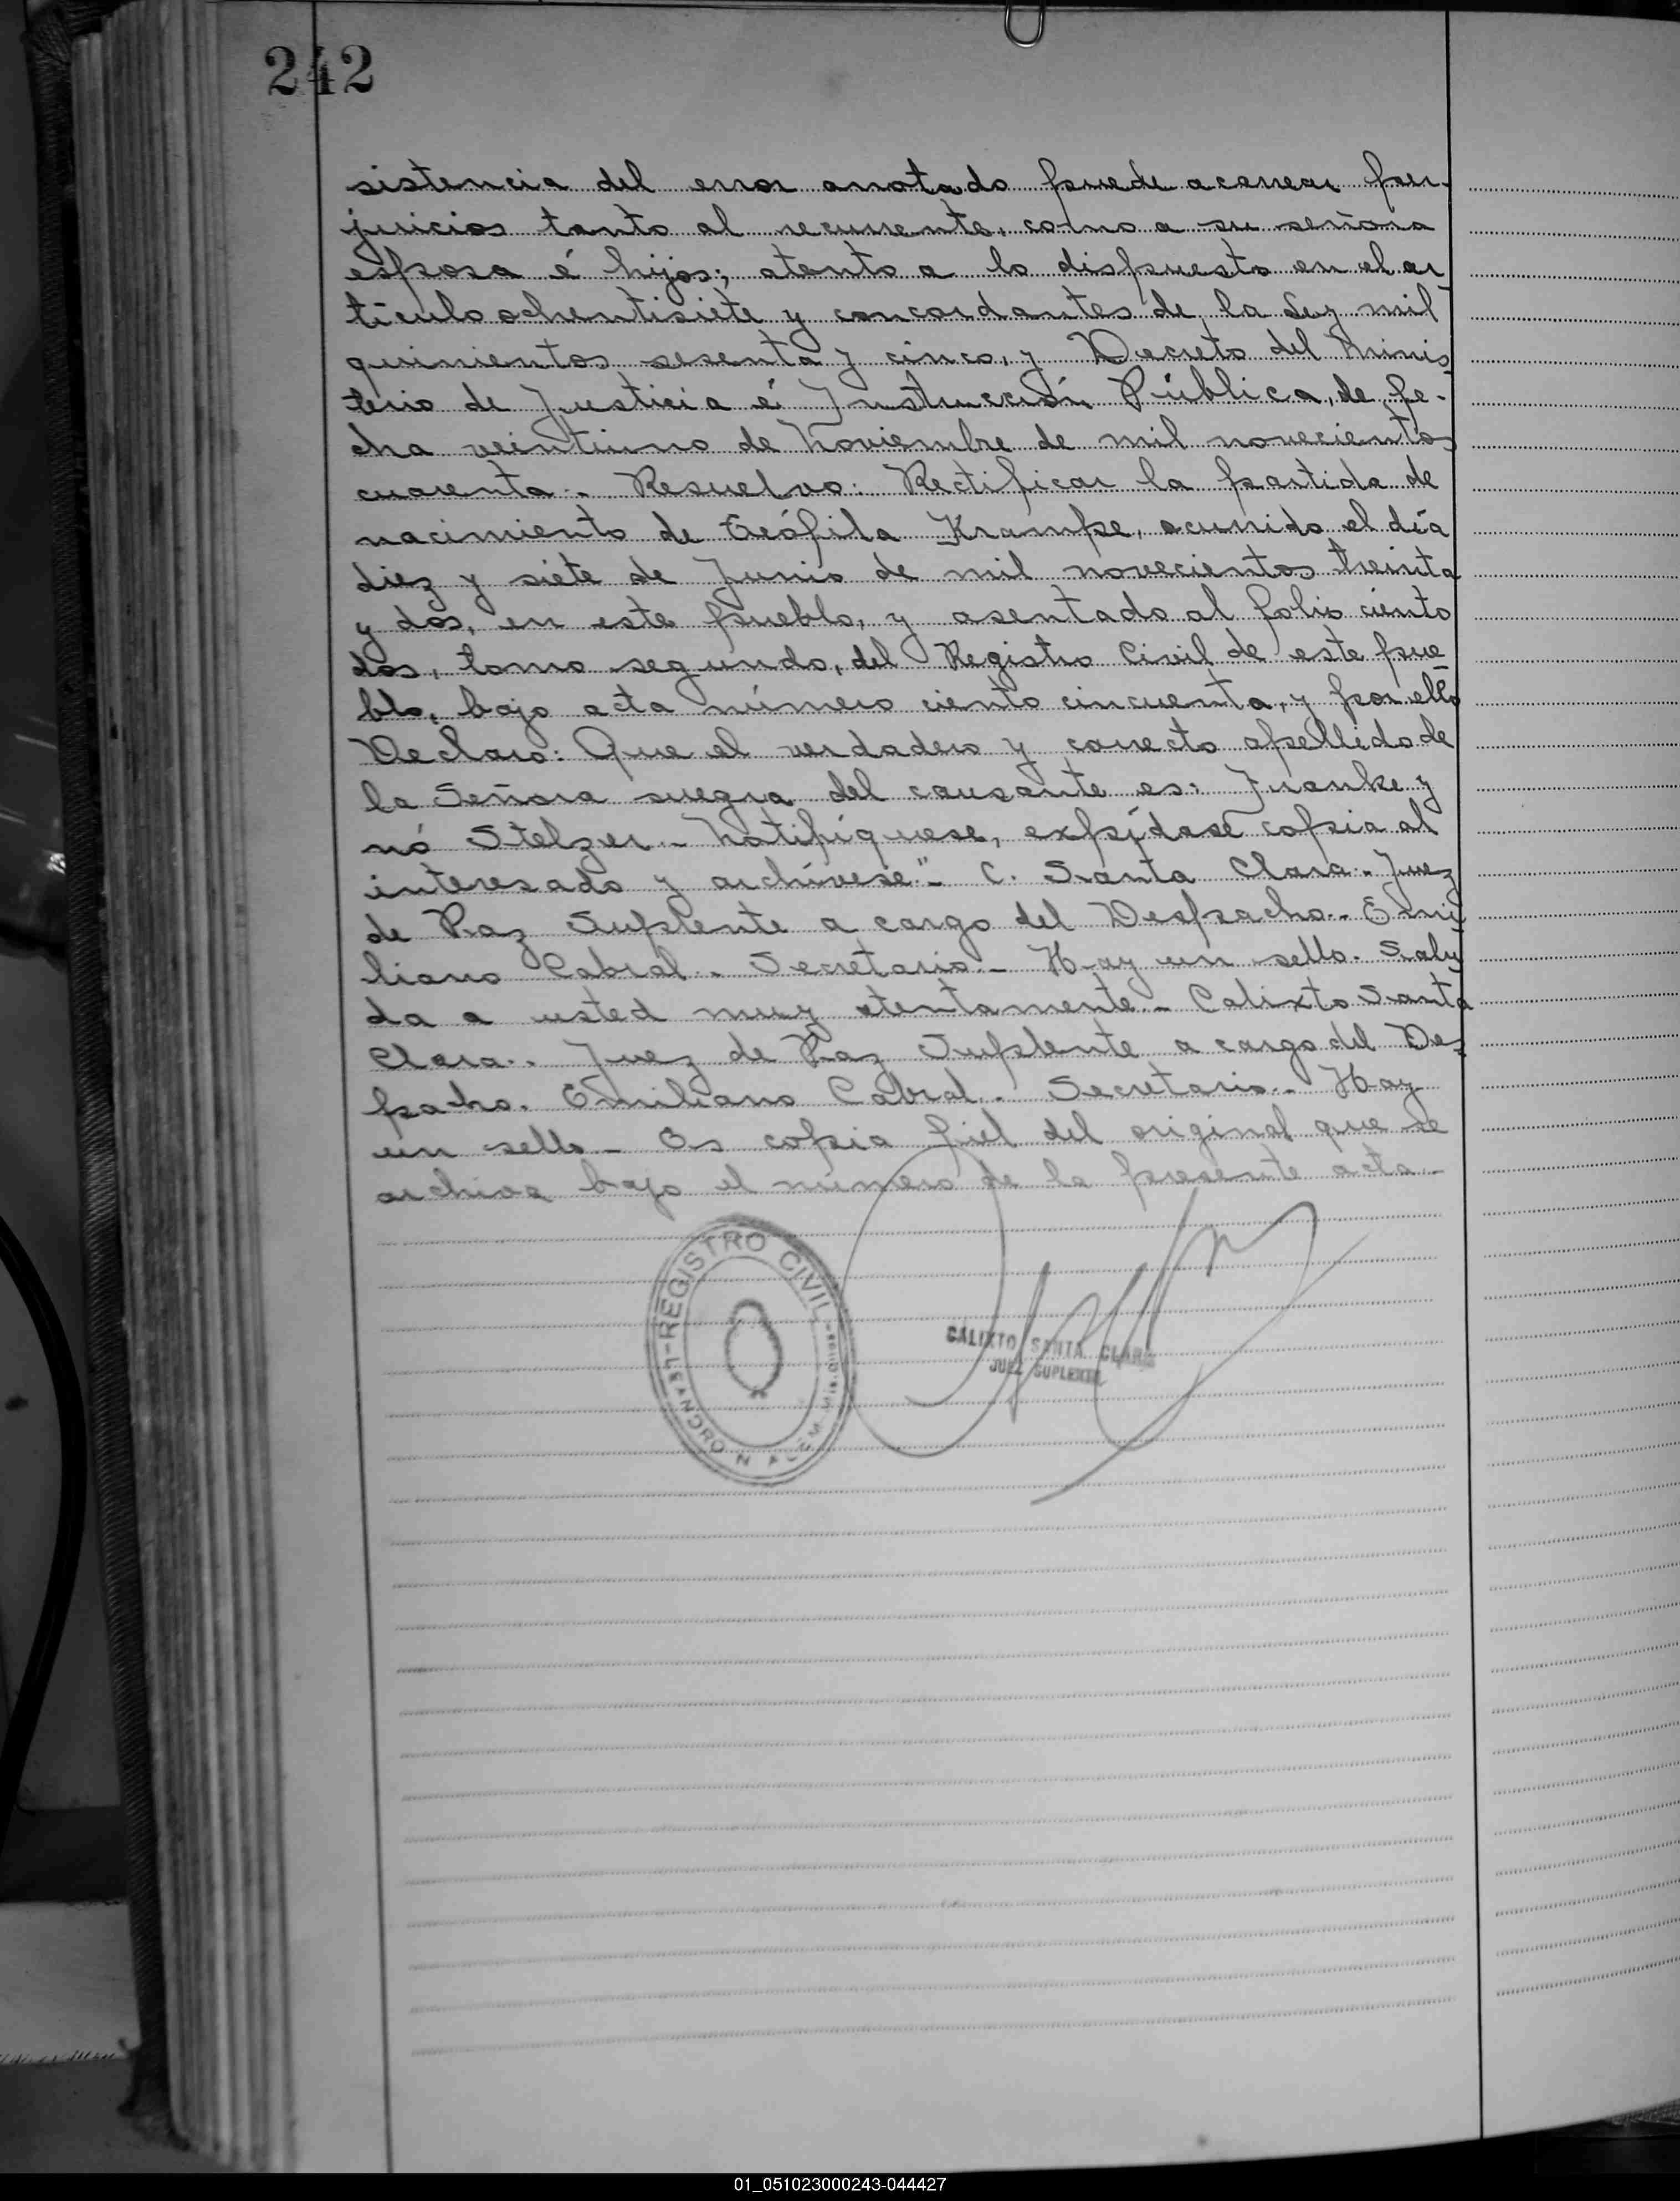 242
sistencia del error anotado puede acarrear per-
juicios tanto al recurrente, como a su señora
esposa é hijos; atento a lo dispuesto en el ar
tículo ochentisiete y concordantes de la Ley mil
quinientos sesenta y cinco, y Decreto del Minis
terio de Justicia é Instrucción Pública, de fe-
cha veintiuno de Noviembre de mil novecientos
cuarenta.- Resuelvo: Rectificar la partida de
nacimiento de Teófila Krampe, ocurrido el día
diez y siete de Junio de mil novecientos treinta
y dos, en este pueblo, y asentado al folio ciento
dos, tomo segundo, del Registro Civil de este pue
blo, bajo acta número ciento cincuenta, y por ello
Declaro: Que el verdadero y correcto apellido de
la Señora suegra del causante es: Franke y
nó Stelzer.- Notifíquese, expídase copia al
interesado y archívese".- C. Santa Clara.- Juez
de Paz Suplente a cargo del Despacho.- Emi
liano Cabral.- Secretario.- Hay un sello.- Salu
da a usted muy atentamente.- Calixto Santa
Clara.- Juez de Paz Suplente a cargo del Des
pacho. Emiliano Cabral.- Secretario.- Hay
un sello.- Es copia fiel del original que se
archiva bajo el número de la presente acta.-
REGISTRO CIVIL
LEANDRO N. ALEM
CALIXTO SANTA CLARA
JUEZ SUPLENTE
01_051023000243-044427